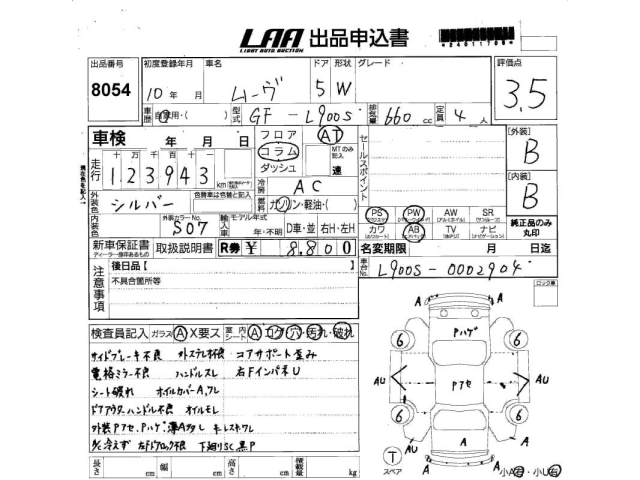 LAA 出品申込書
LIGHT AUTO AUCTION
*24011708*
出品番号 初度登録年月 車名 ドア 形状 グレード 評価点
8054 10年 月 ムーヴ 5 W 3.5
車歴 自家用・( ) 型式 GF - L900S 排気量 660 cc 定員 4 人
車検 年 月 日
フロア コラム ダッシュ
AT
MTのみ記入 速
セールスポイント
[外装]
B
走行 十万 万 千 百 十 一
123943 km
[内装]
B
冷房 AC
外装色 シルバー 色替車は色替と記入
燃料 ガソリン・軽油・( )
内装色 外装カラーNo. S07
輸入車 モデル年式 年・不明 D車・並 右H・左H
PS PW AW SR
カワ AB TV ナビ
純正品のみ丸印
新車保証書 取扱説明書 R券 ¥ 8,800
ディーラー捺印あるもの
名変期限 月 日迄
車台No. L900S - 0002904
注意事項
後日品【
不具合箇所等
ロック車
検査員記入 ガラス A X要ス 室内シート A コゲ・穴・汚れ・破れ
サイドブレーキ不良 コアサポート歪み
電格ミラー不良 ハンドルスレ 右FインパネU
シート破れ ホイルカバーA,ワレ
ドアアウターハンドル不良 オイルモレ
外装Pアセ、Pハゲ キーレスナシ
下廻りSC、黒P
Pハゲ
Pアセ
A
A
A
6
6
6
6
AU
AU
AU
A
A
A
T
スペア
長さ cm 幅 cm 高さ cm 積載量 kg
小A有・小U有